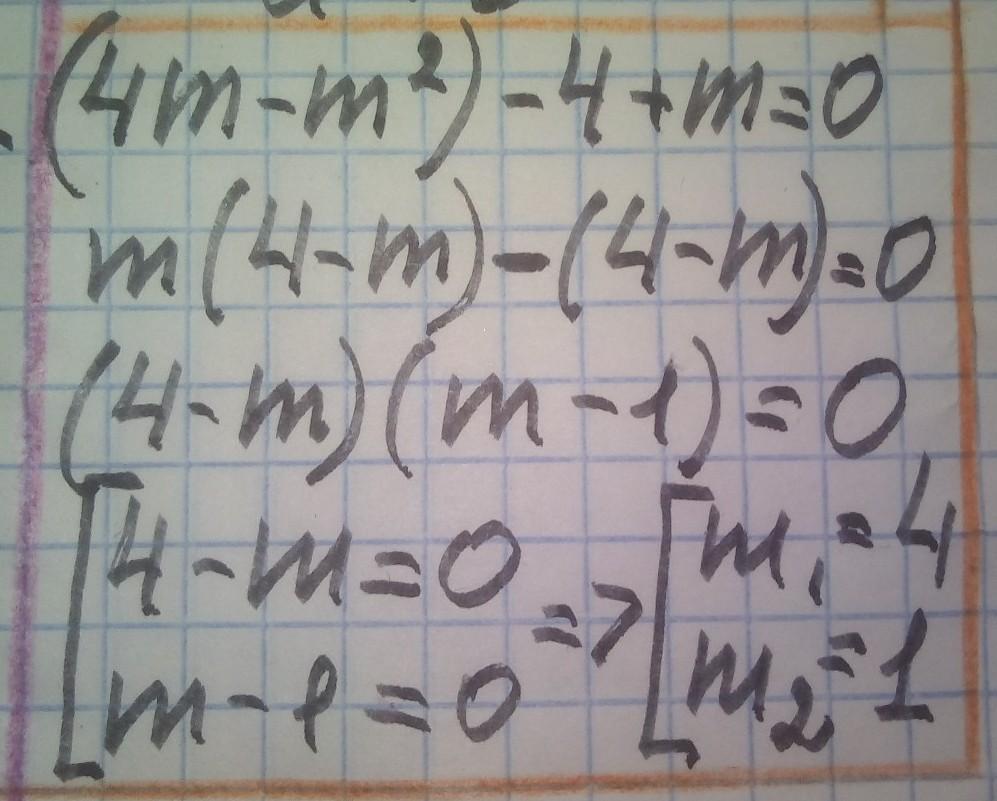 (4m-m²)-4+m=0
m(4-m)-(4-m)=0
(4-m)(m-1)=0
[4-m=0 => [m₁=4
m-1=0 m₂=1